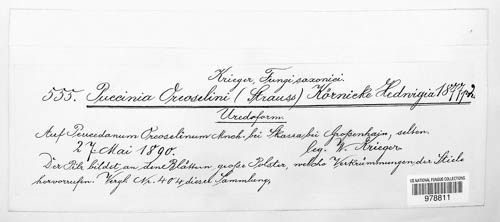 Krieger, Fungi saxonici.
555. Puccinia Oreoselini (Strauss) Körnicke Hedwigia 1877 p. 2.
Uredoform.
Auf Peucedanum Oreoselinum Mnch. bei Skassa bei Großenhain, selten.
27. Mai 1890. leg. W. Krieger.
Der Pilz bildet an den Blättern große Polster, welche Verkrümmungen der Stiele
hervorrufen. Vergl. Nr. 404 dieser Sammlung.
US NATIONAL FUNGUS COLLECTIONS
978811